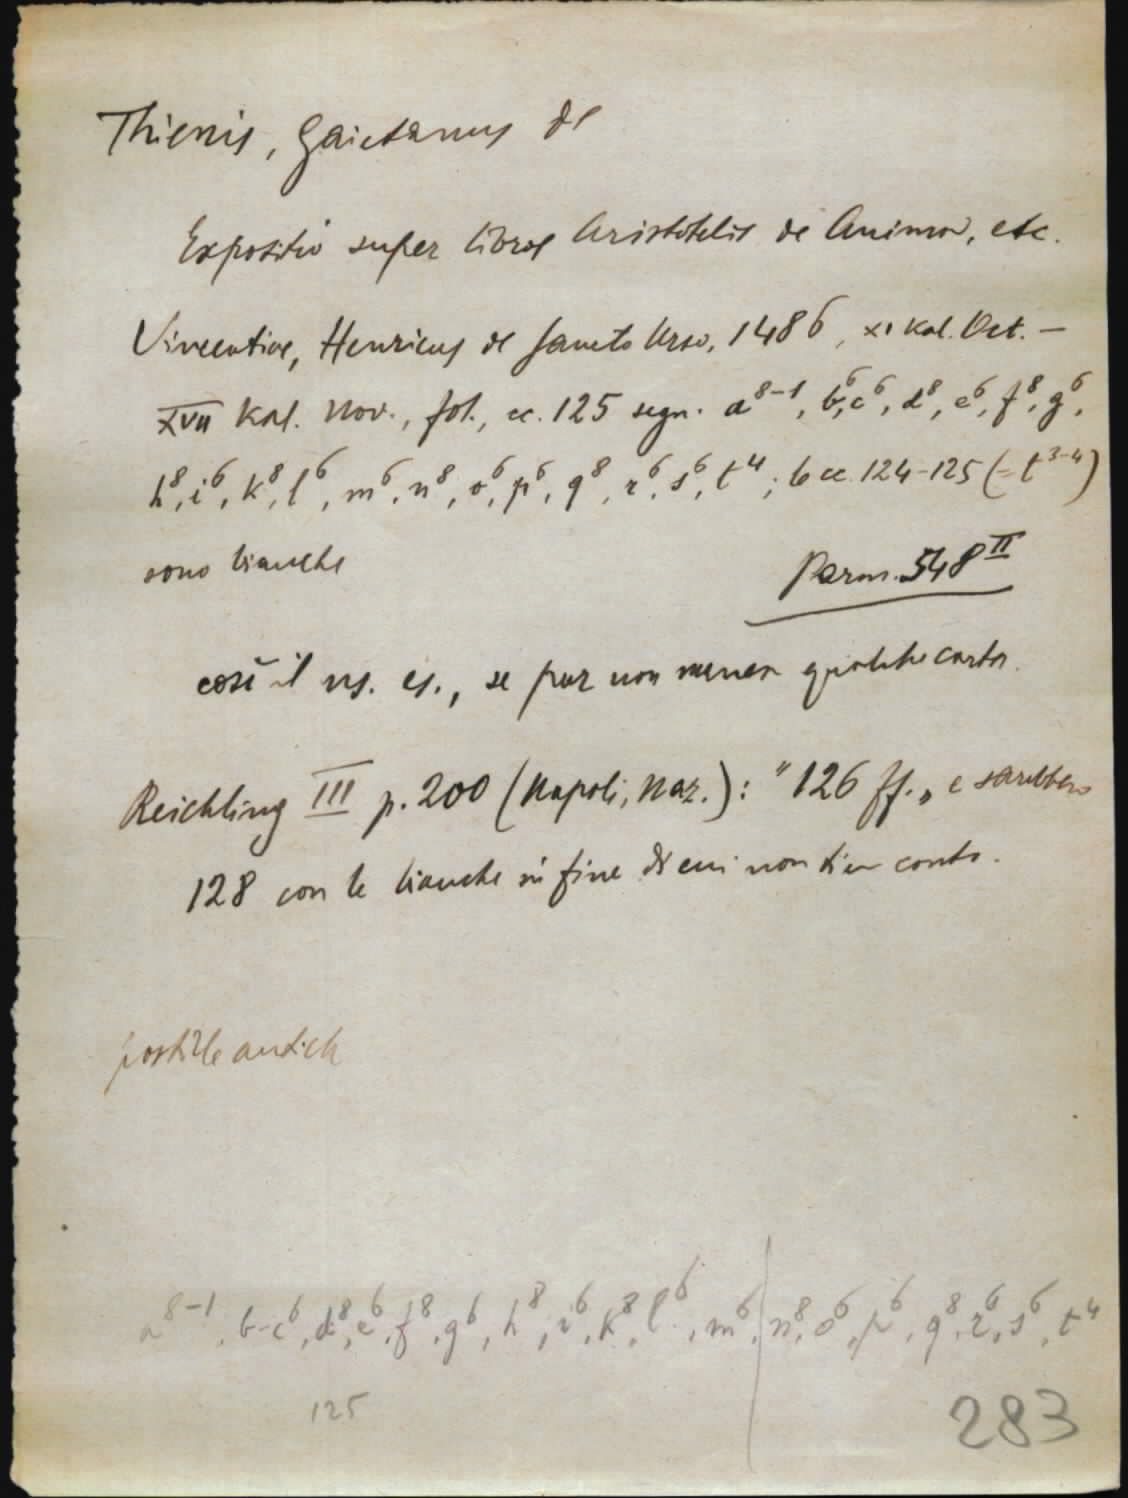 Thienis, Gaietanus de
Expositio super libros Aristotelis de Anima, etc.
Vincentiae, Henricus de Sancto Urso, 1486, xi Kal. Oct. –
XVII Kal. Nov., fol., cc. 125 segn. a⁸⁻¹, b⁶, c⁶, d⁸, e⁶, f⁸, g⁶,
h⁸, i⁶, k⁸, l⁶, m⁶, n⁸, o⁶, p⁶, q⁸, r⁶, s⁶, t⁴; le cc. 124-125 (= t³⁻⁴)
sono bianche
Parm. 548 II
così il ns. es., se pur non manca qualche carta.
Reichling III p. 200 (Napoli, Naz.): "126 ff.„ e sarebbero
128 con le bianche in fine di cui non tien conto.
postille antich
a⁸⁻¹, b-c⁶, d⁸, e⁶, f⁸, g⁶, h⁸, i⁶, k⁸, l⁶, m⁶, n⁸, o⁶, p⁶, q⁸, r⁶, s⁶, t⁴
125
283